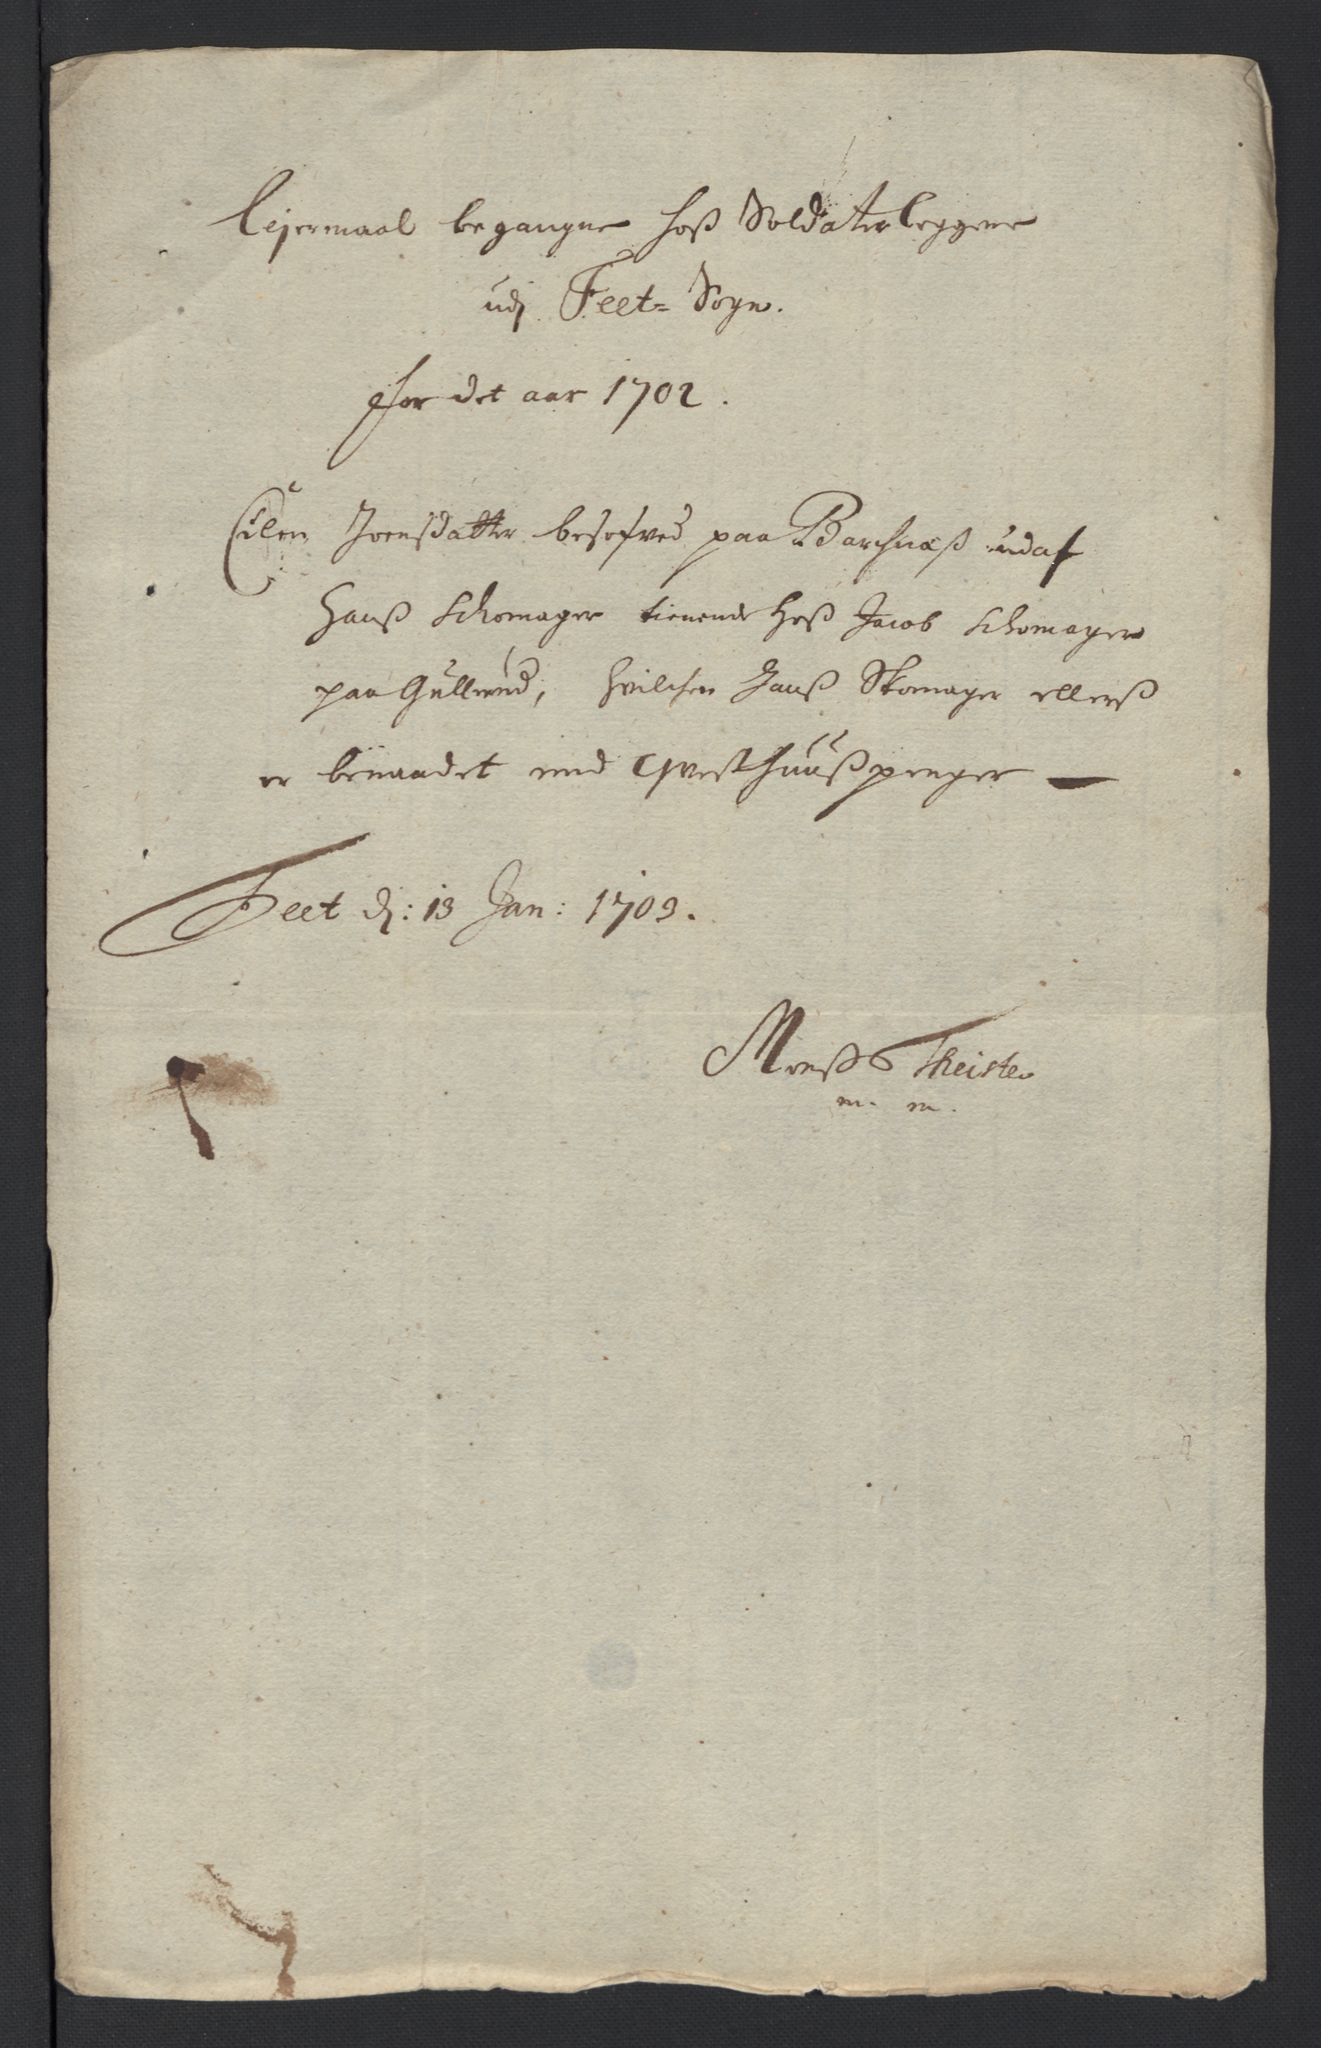 Lejermaal begangne hoß Soldaterleggene
udj Feet= Sogn.
for det aar 1702.
Eilen Joensdatter besofved paa Barchnæß udaf
Hanß Schomager tienende hoß Jacob Schomager
paa Gullerud, hvilchen Hanß Skomager ellerß
er benaadet med Qvesthuußpenger —
Feet dj: 13 Jan: 1703.
Monß Theiste
m. m.